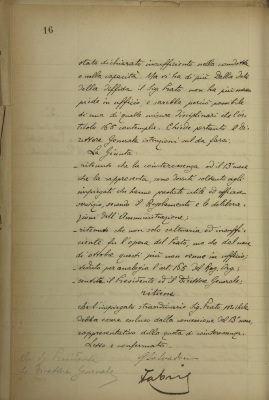 16
stato dichiarato insufficiente nella condotta
e nella capacità. Ma vi ha di più. Dalla data
della diffida il Sig. Prato non ha più messo
piede in ufficio, e sarebbe perciò passibile
di una di quelle misure disciplinari che l'ar-
ticolo 165 contempla. Chiede pertanto il Di-
rettore Generale istruzioni sul da farsi.
La Giunta:
ritenuto che la cointeressenza ed il 13° mese
che la rappresenta, sono dovuti soltanto agli
impiegati che hanno prestato utile ed efficace
servizio, secondo il Regolamento e le delibera-
zioni dell'Amministrazione;
ritenuto che non solo saltuaria ed insuffi-
ciente fu l'opera del Prato, ma che dal mese
di ottobre quasi più non venne in ufficio;
veduto per analogia l'art. 165 del Reg. Org.;
sentito il Presidente ed il Direttore Generale;
ritiene
che l'impiegato straordinario Sig. Prato
debba essere escluso dalla concessione del 13° mese
rappresentativo della quota di cointeressenza.
Letto e confermato.
Il Presidente
Il Direttore Generale